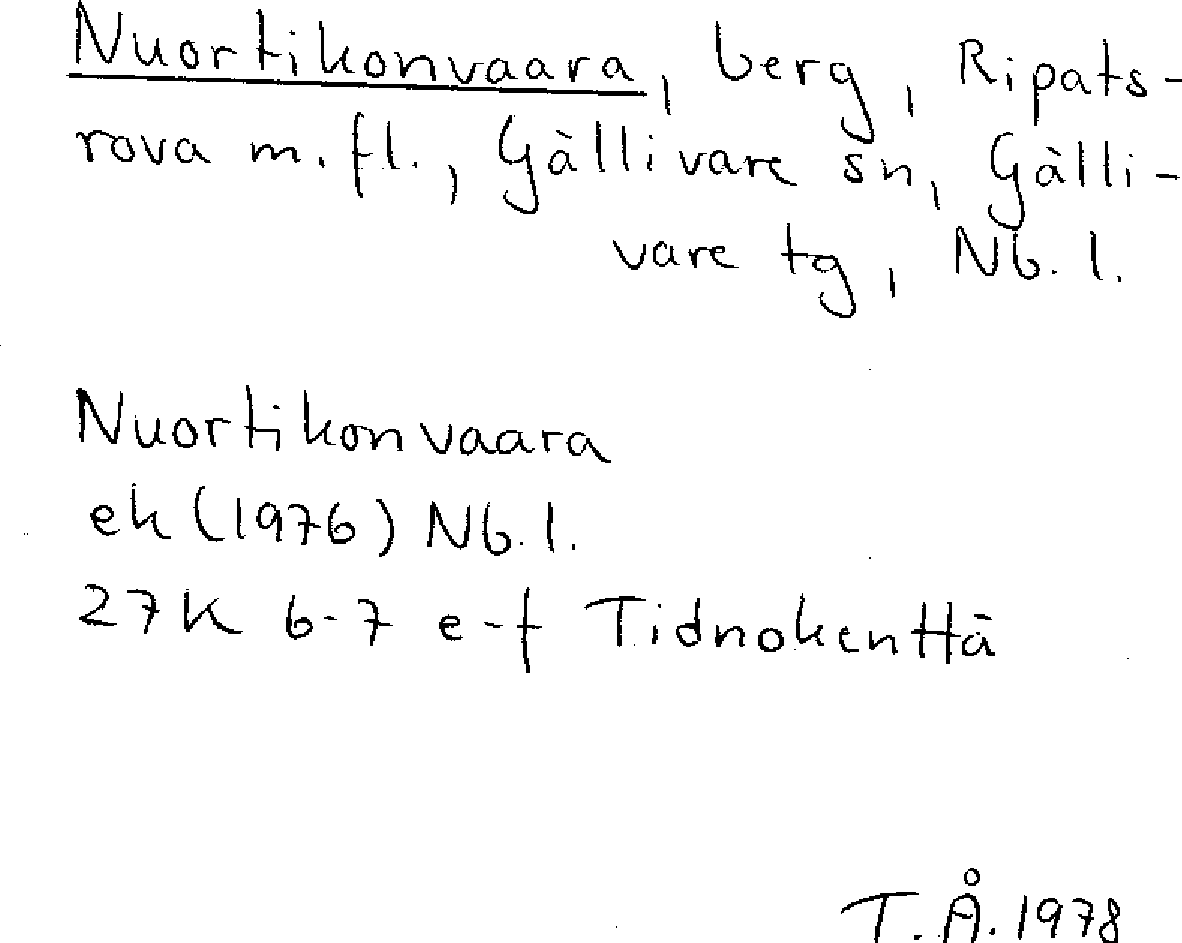 Nuortikonvaara, berg, Ripats-
rova m.fl., Gällivare sn, Gälli-
vare tg, Nb.l.
Nuortikonvaara
ek (1976) Nb.l.
27K 6-7 e-f Tidnokenttä
T.Å. 1978